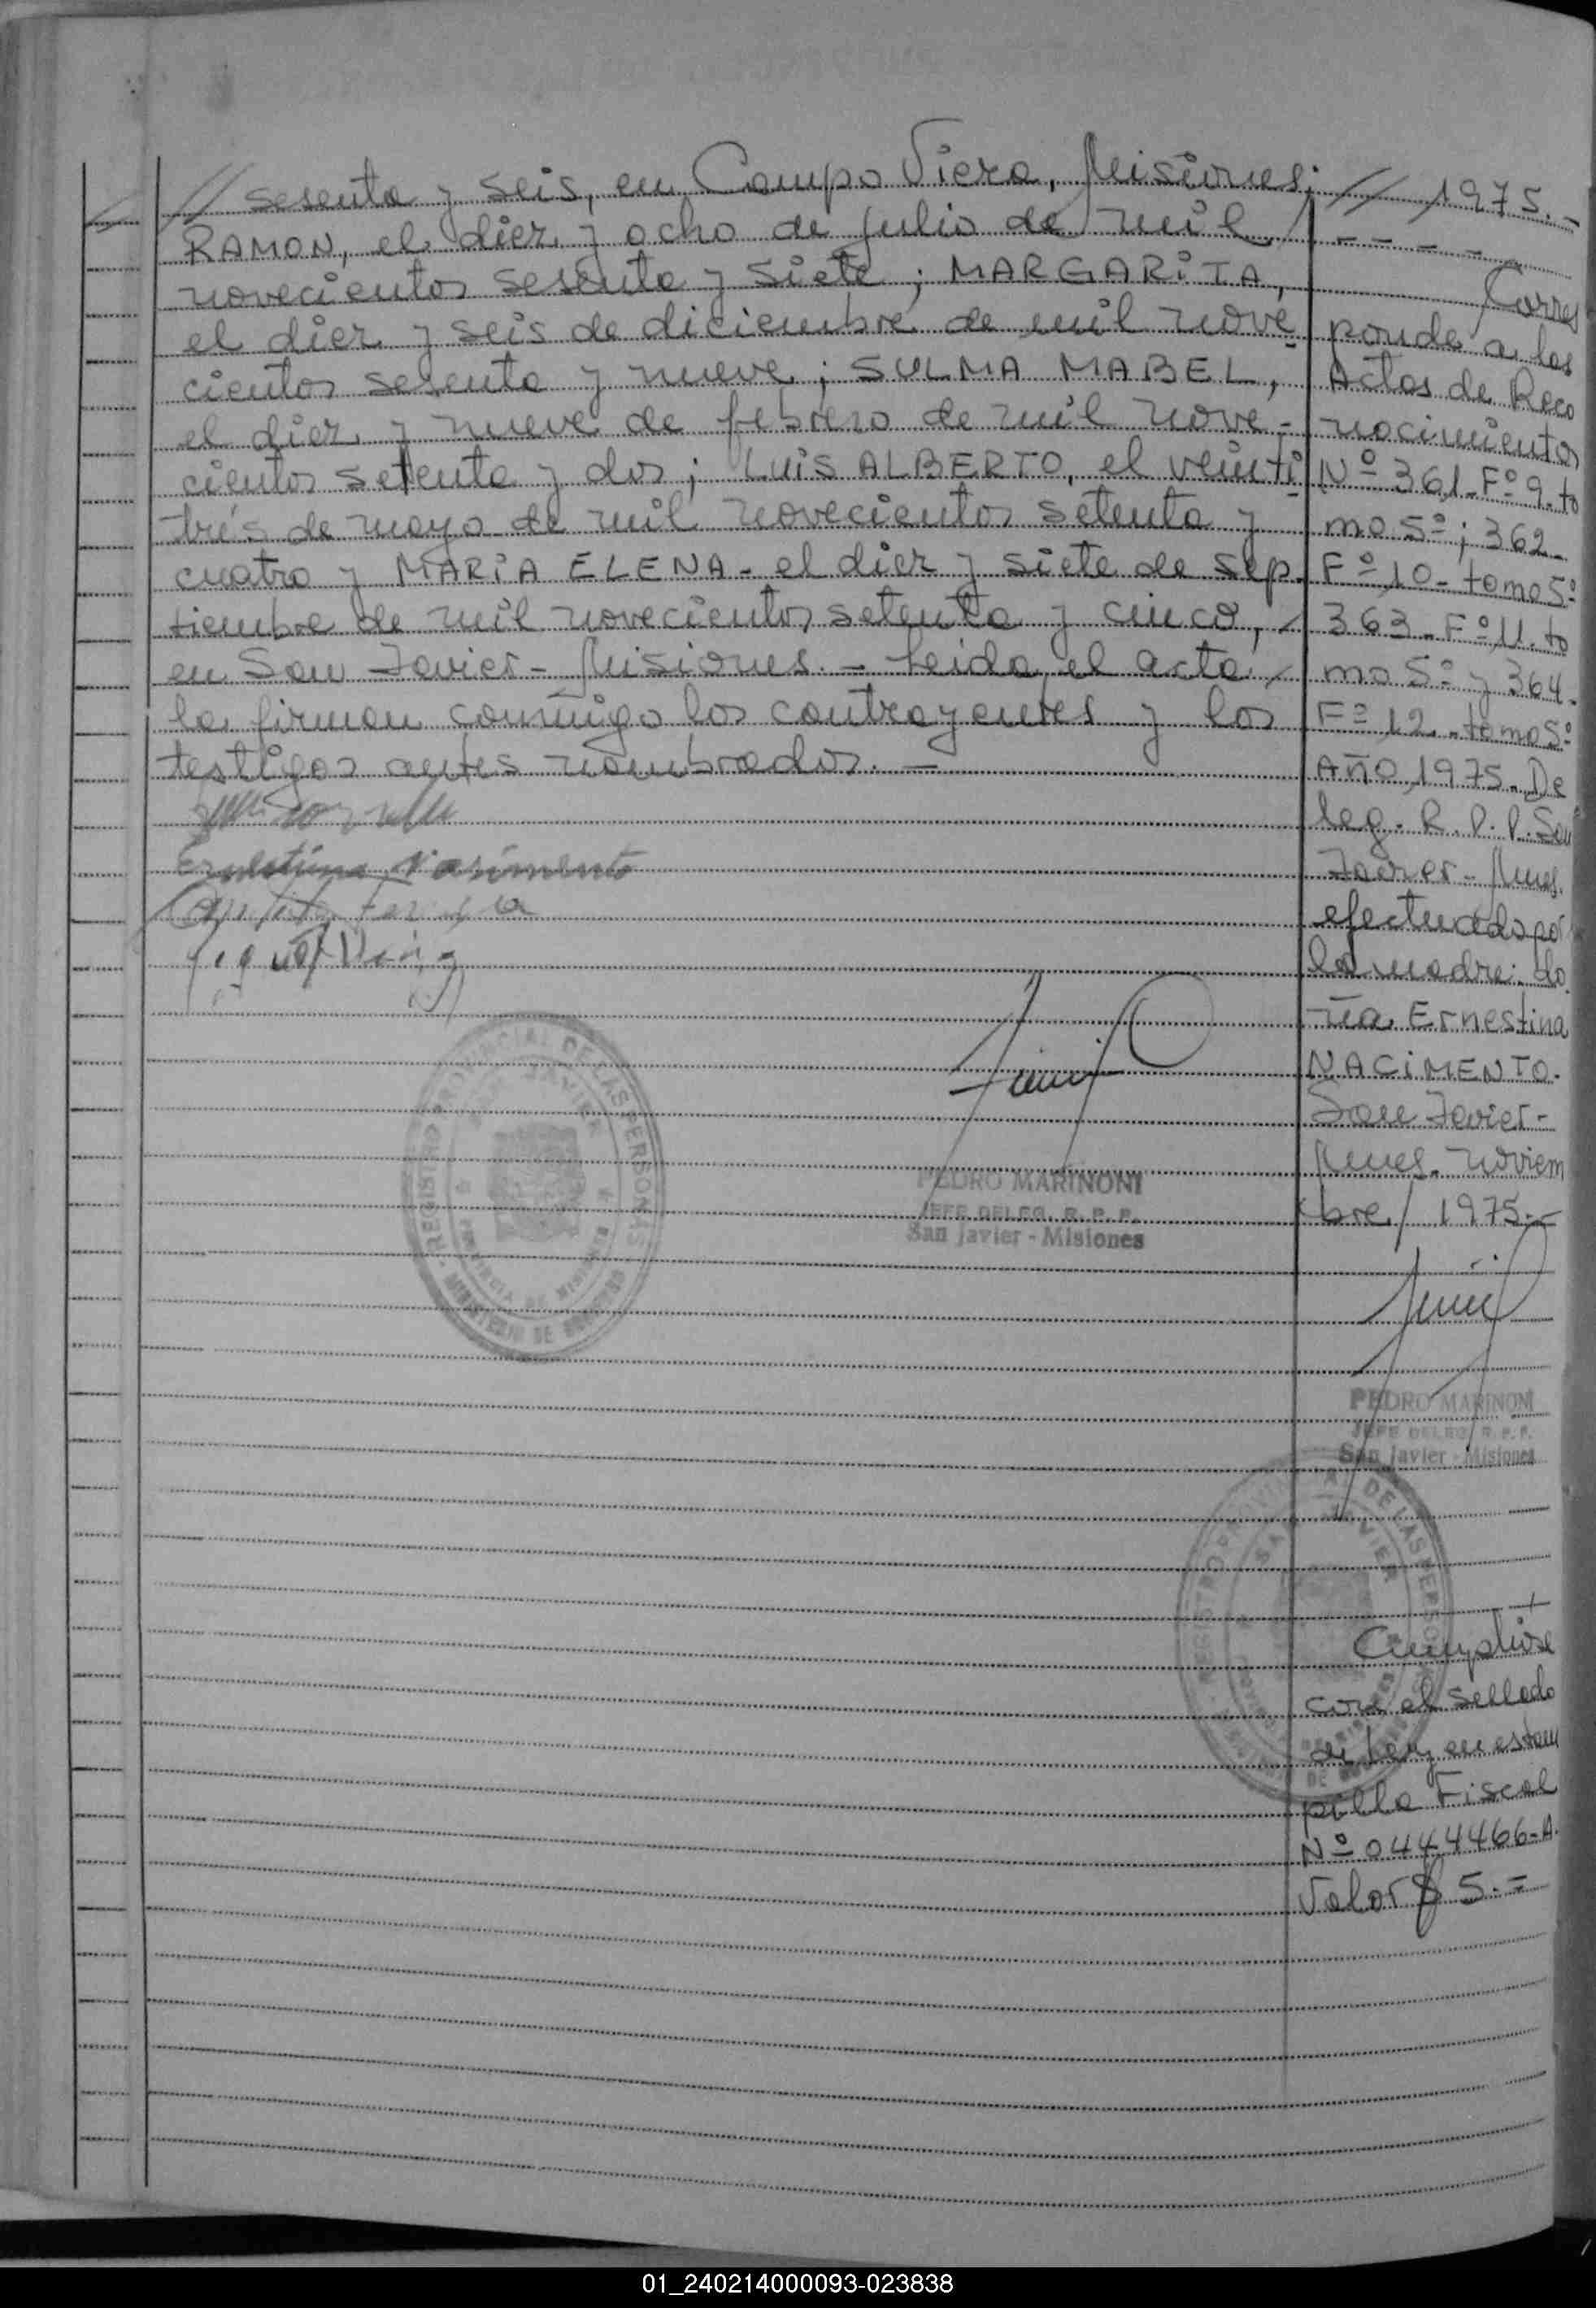 // sesenta y seis, en Campo Viera, Misiones;
RAMON, el diez y ocho de julio de mil /
novecientos sesenta y siete; MARGARITA,
el diez y seis de diciembre de mil nove-
cientos sesenta y nueve; SULMA MABEL,
el diez y nueve de febrero de mil nove-
cientos setenta y dos; LUIS ALBERTO, el veinti-
trés de mayo de mil novecientos setenta y
cuatro y MARIA ELENA - el diez y siete de sep-
tiembre de mil novecientos setenta y cinco, /
en San Javier - Misiones. - Leida el acta /
la firman conmigo los contrayentes y los
testigos antes nombrados. -
Ernestina Nasimento
PEDRO MARINONI
JEFE DELEG. R. P. P.
San Javier - Misiones
REGISTRO PROVINCIAL DE LAS PERSONAS
SAN JAVIER
PROVINCIA DE MISIONES
// 1975. -
- - - -
Corres
ponde a las
Actas de Reco
nocimientos
Nº 361-Fº 9-to
mo 5º; 362-
Fº 10- tomo 5º
363-Fº 11. to
mo 5º y 364-
Fº 12 - tomo 5º
AÑO 1975. De
leg. R. P. P. San
Javier - Mnes.
efectuado por
la madre: do
ña Ernestina
NACIMENTO.
San Javier -
Mnes. noviem
bre / 1975. -
PEDRO MARINONI
JEFE DELEG. R. P. P.
San Javier - Misiones
REGISTRO PROVINCIAL DE LAS PERSONAS
SAN JAVIER
Cumplióse
con el sellado
de Ley en estam
pilla Fiscal
Nº 0444466-A.
Valor $ 5.=
01_240214000093-023838